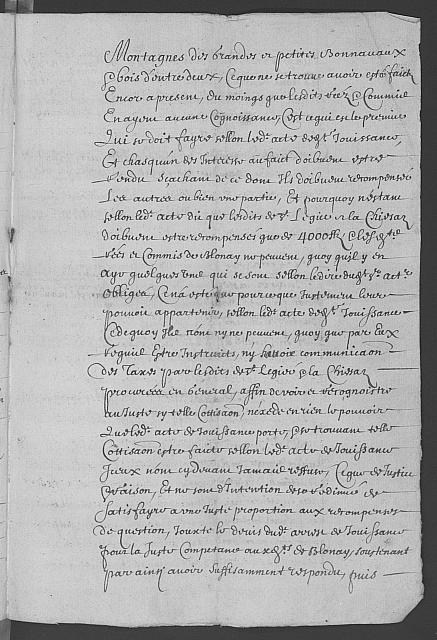 Montagnes des grandes et petites Bonnavaux
& bois d'entre deux, Ceque ne se trouve avoir esté faict
Encor a present, du moings que lesdits & Commis
En ayent aucune Cognoissance, C'est ce qui est le premier
Qui se doit fayre sellon led: acte de Jouissance,
Et chasquun des Interesse au faict doibuent estre
rendu scachant de ce dont Ils doibuent recompenser
Les autres ou bien une partie, Et pourquoy n'estant
sellon led: acte dit que lesdits de St Legier & la Chiesaz
doibuent estre recompensés que de 4000 ff,
& Commis de Blonay ne peuvent, quoy qu'il y en
aye quelques uns qui se sont sellon le dire acte
obligés, Cena esté que pour ce que Justement leur
pouvoir appartenir, sellon led: acte de Jouissance
Cedequoy Ils non ny ne peuvent, quoy que par Eux
requis Estre Instruicts, ny havoir communicaon
des Taxes par lesdits de St Legier & la Chiesaz
procurées en General, affin de voir et recognoistre
au Juste sy telle Cottisaon, n'exede en rien le pouvoir
Que led: acte de Jouissance porte, & se trouvant telle
Cottisaon estre faicte sellon led: acte de Jouissance
Iceux nont cy devant Jamais reffusé, Ceque de Justice
& raison, Et ne sont d'Intention de
satisfayre a une Juste proportion aux recompenses
de question, Jouxte le dud: de Jouissance
pour la Juste Competance aux de Blonay, soustenant
par ainsi avoir suffisamment respondu, puis